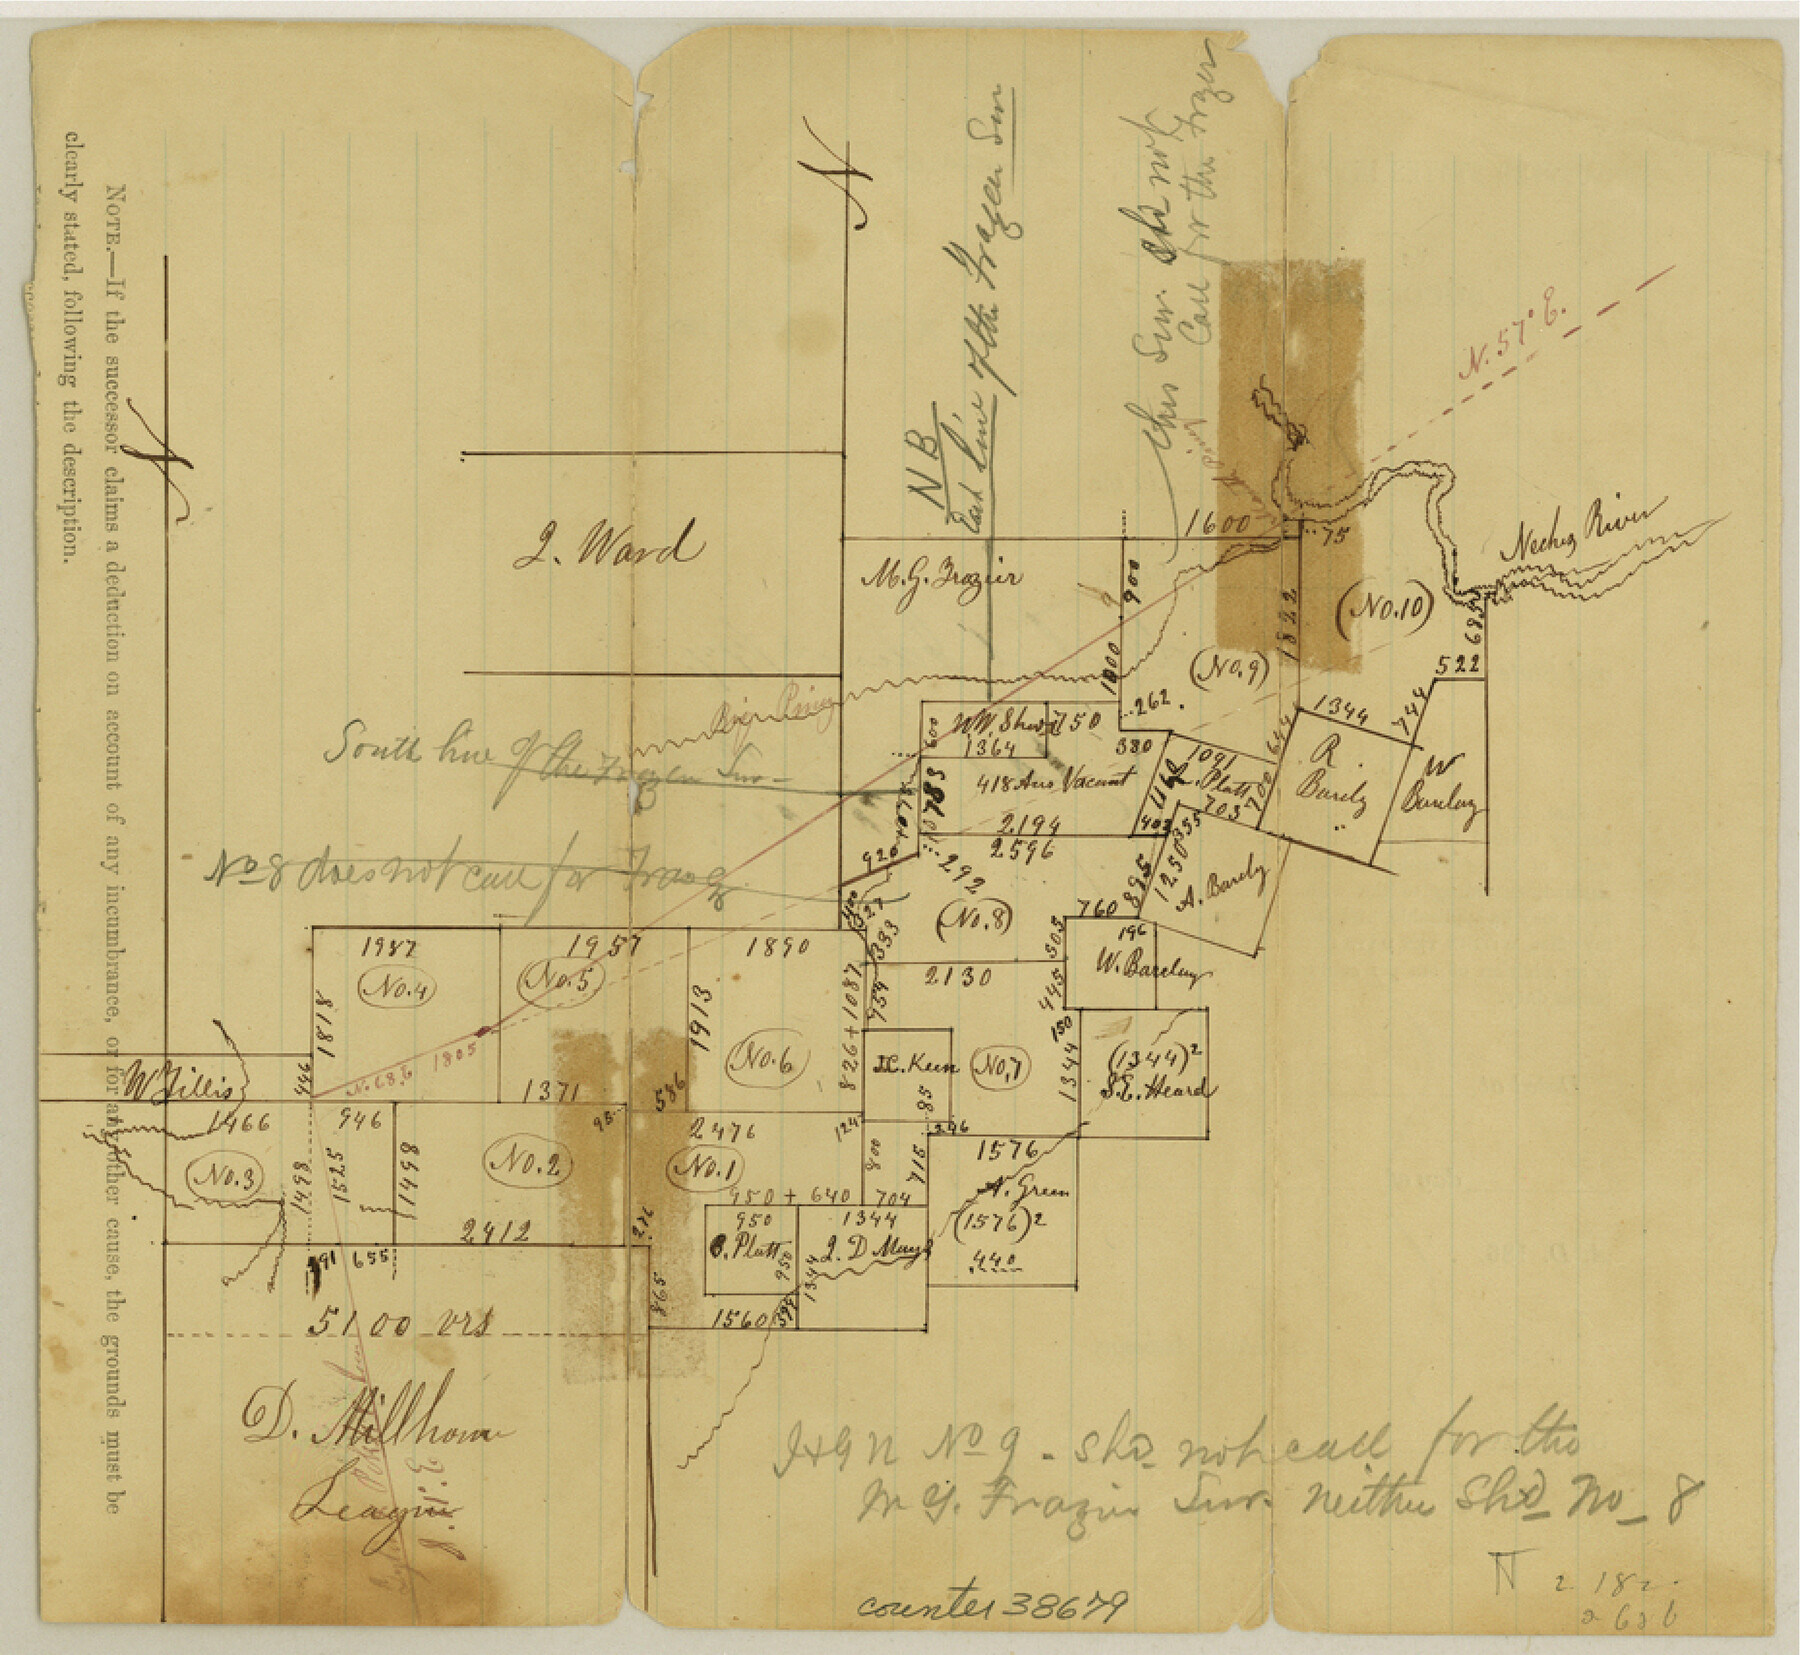 NOTE.—If the successor claims a deduction on account of any incumbrance, or for any other cause, the grounds must be
clearly stated, following the description.
N
N
N B
East line of the Frazer Sur
This Sur. shd not
Call for the Frazer
N. 57° E.
Neches River
J. Ward
M. G. Frazier
1600
75
900
1000
1822
(No. 10)
695
522
744
(No. 9)
262.
1344
Big Piney
South line of the Frazer Sur
600
W.W.
750
1364
380
1091
644
418 Acrs Vacant
1160
L. Platt
703
700
R.
Barcly
W
Barclay
1078
789
2194
403
355
2596
920
292
No 8 does not call for
400
327
(No. 8)
895
1250
A. Barcly
760
196
W. Barclay
505
445
393
2130
1987
1957
1890
No. 4
No. 5
1818
1913
826+1087
754
No. 6
J.C. Keen
No. 7
150
1344
(1344)²
S.E. Heard
W Gillis
446
N. 68 E
1805
1371
586
95
85
246
1466
946
2476
124
1576
No. 3
1498
1525
1498
No. 2
No. 1
800
715
A. Green
(1576)²
440
950 + 640
704
950
1344
2412
276
B. Platt
950
J. D Mays
1344
191
655
865
1560
394
5100 vrs
D. Millhome
League
I&GN No 9 - shd not call for the
M G. Frazier Sur. neither Shd No 8
counter 38679
N
2 182.
2 626